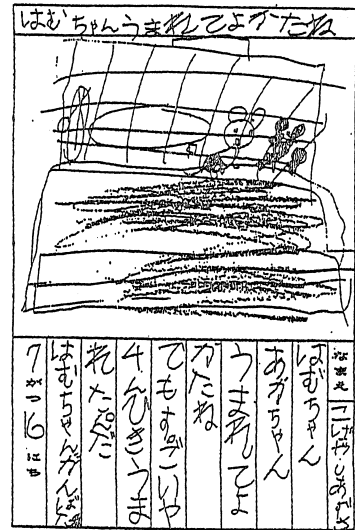 はむちゃんうまれてよかたね
なまえ
はむちゃん
あかちゃん
うまれてよ
かたね
でもすごいや
4んひきうま
れたんだ
はむちゃんがんば
7がつ16にち